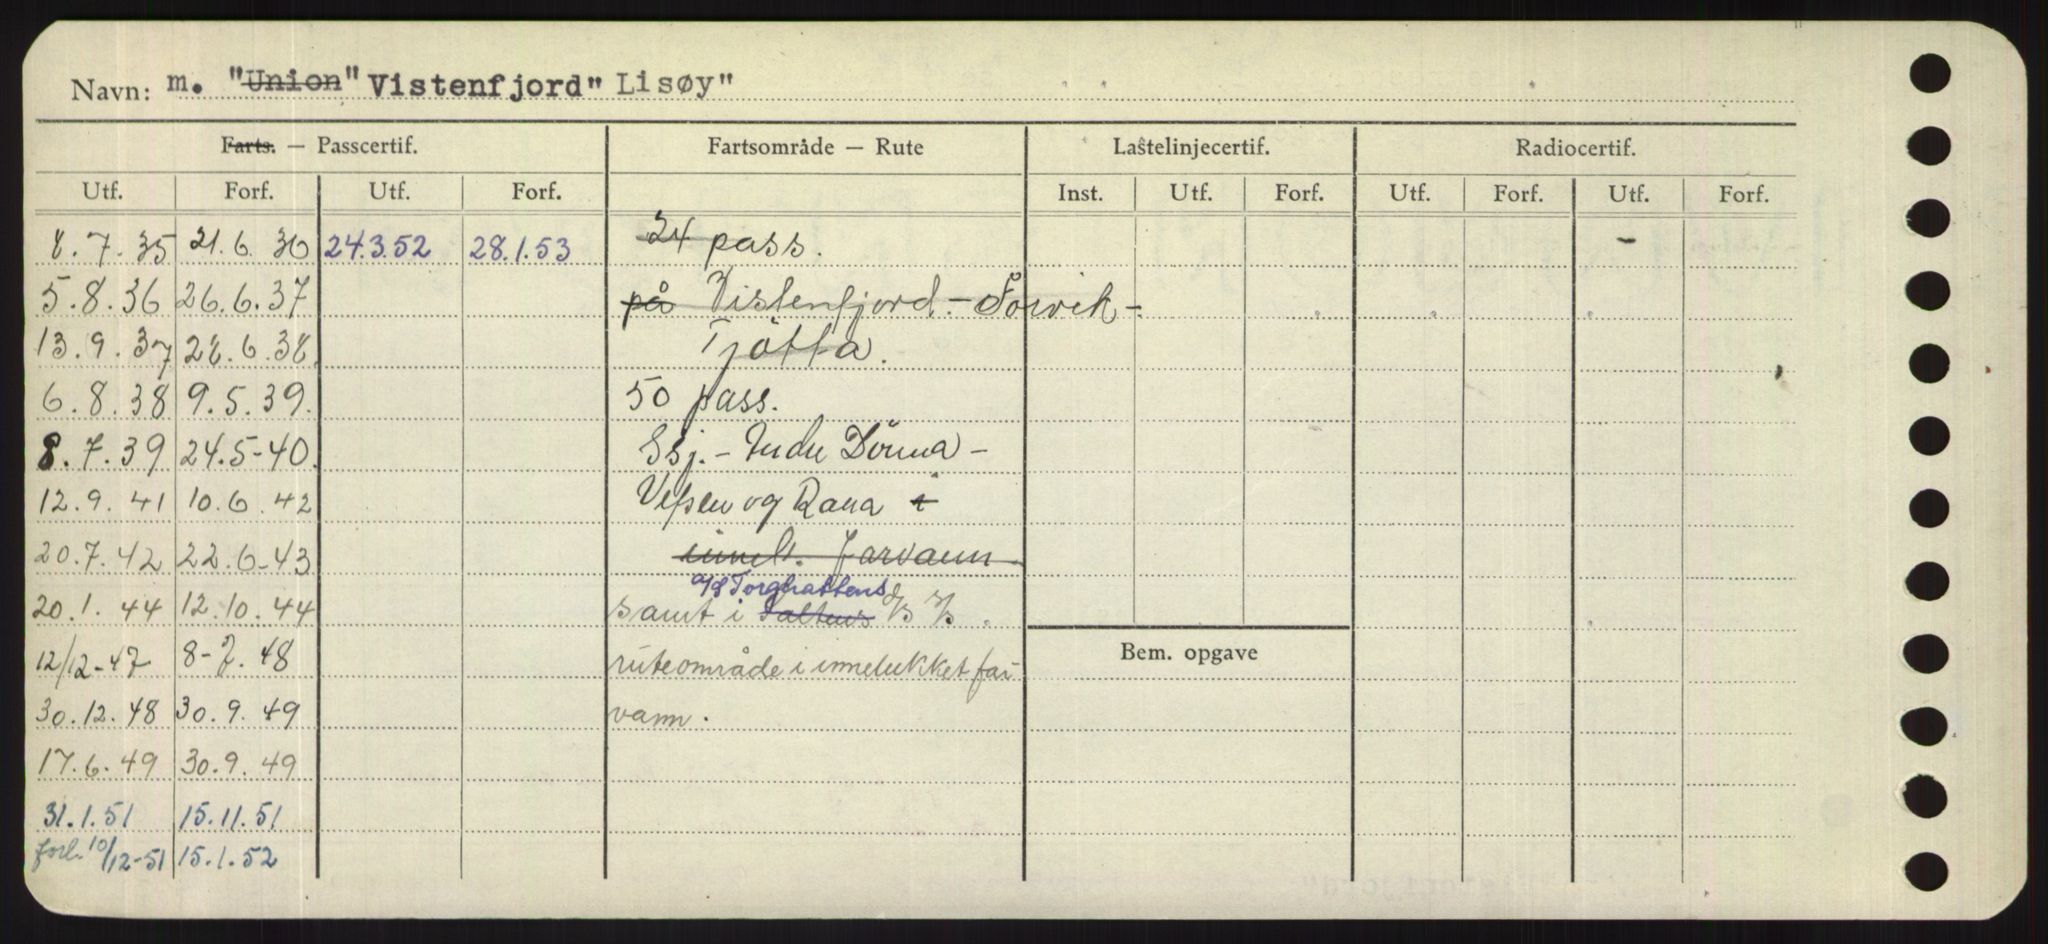 Navn: m. "Union" Vistenfjord" Lisøy"
Farts. — Passcertif. Fartsområde — Rute Lastelinjecertif. Radiocertif.
Utf. Forf. Utf. Forf. Inst. Utf. Forf. Utf. Forf. Utf. Forf.
8.7.35 21.6.36 24.3.52 28.1.53 24 pass.
5.8.36 26.6.37 på Vistenfjord.-Forvik-
13.9.37 28.6.38. Tjötta.
6.8.38 9.5.39. 50 pass.
8.7.39 24.5-40. Ssj. - Indre Dönna -
12.9.41 10.6.42 Vefsen og Rana i
20.7.42 22.6-43 innel. farvann
a/s Torghattens
20.1.44 12.10.44 samt i Saltens D/S S/S.
12/12-47 8-7.48 ruteområde i innelukket far-
Bem. opgave
30.12.48 30.9.49 vann.
17.6.49 30.9.49
31.1.51 15.11.51
forl. 10/12-51 15.1.52